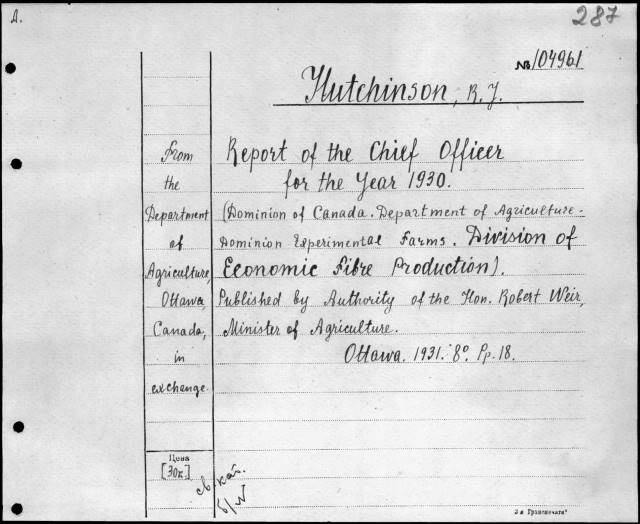 A.
287
№ 104961
Hutchinson, R. J.
From
the
Department
of
Agriculture,
Ottawa,
Canada,
in
exchange.
Report of the Chief Officer
for the Year 1930.
(Dominion of Canada. Department of Agriculture-
Dominion Experimental Farms. Division of
Economic Fibre Production).
Published by Authority of the Hon. Robert Weir,
Minister of Agriculture.
Ottawa. 1931. 8º. Pp. 18.
Цена
[30к.]
св. кат.
б/№
3-я Транспечать"